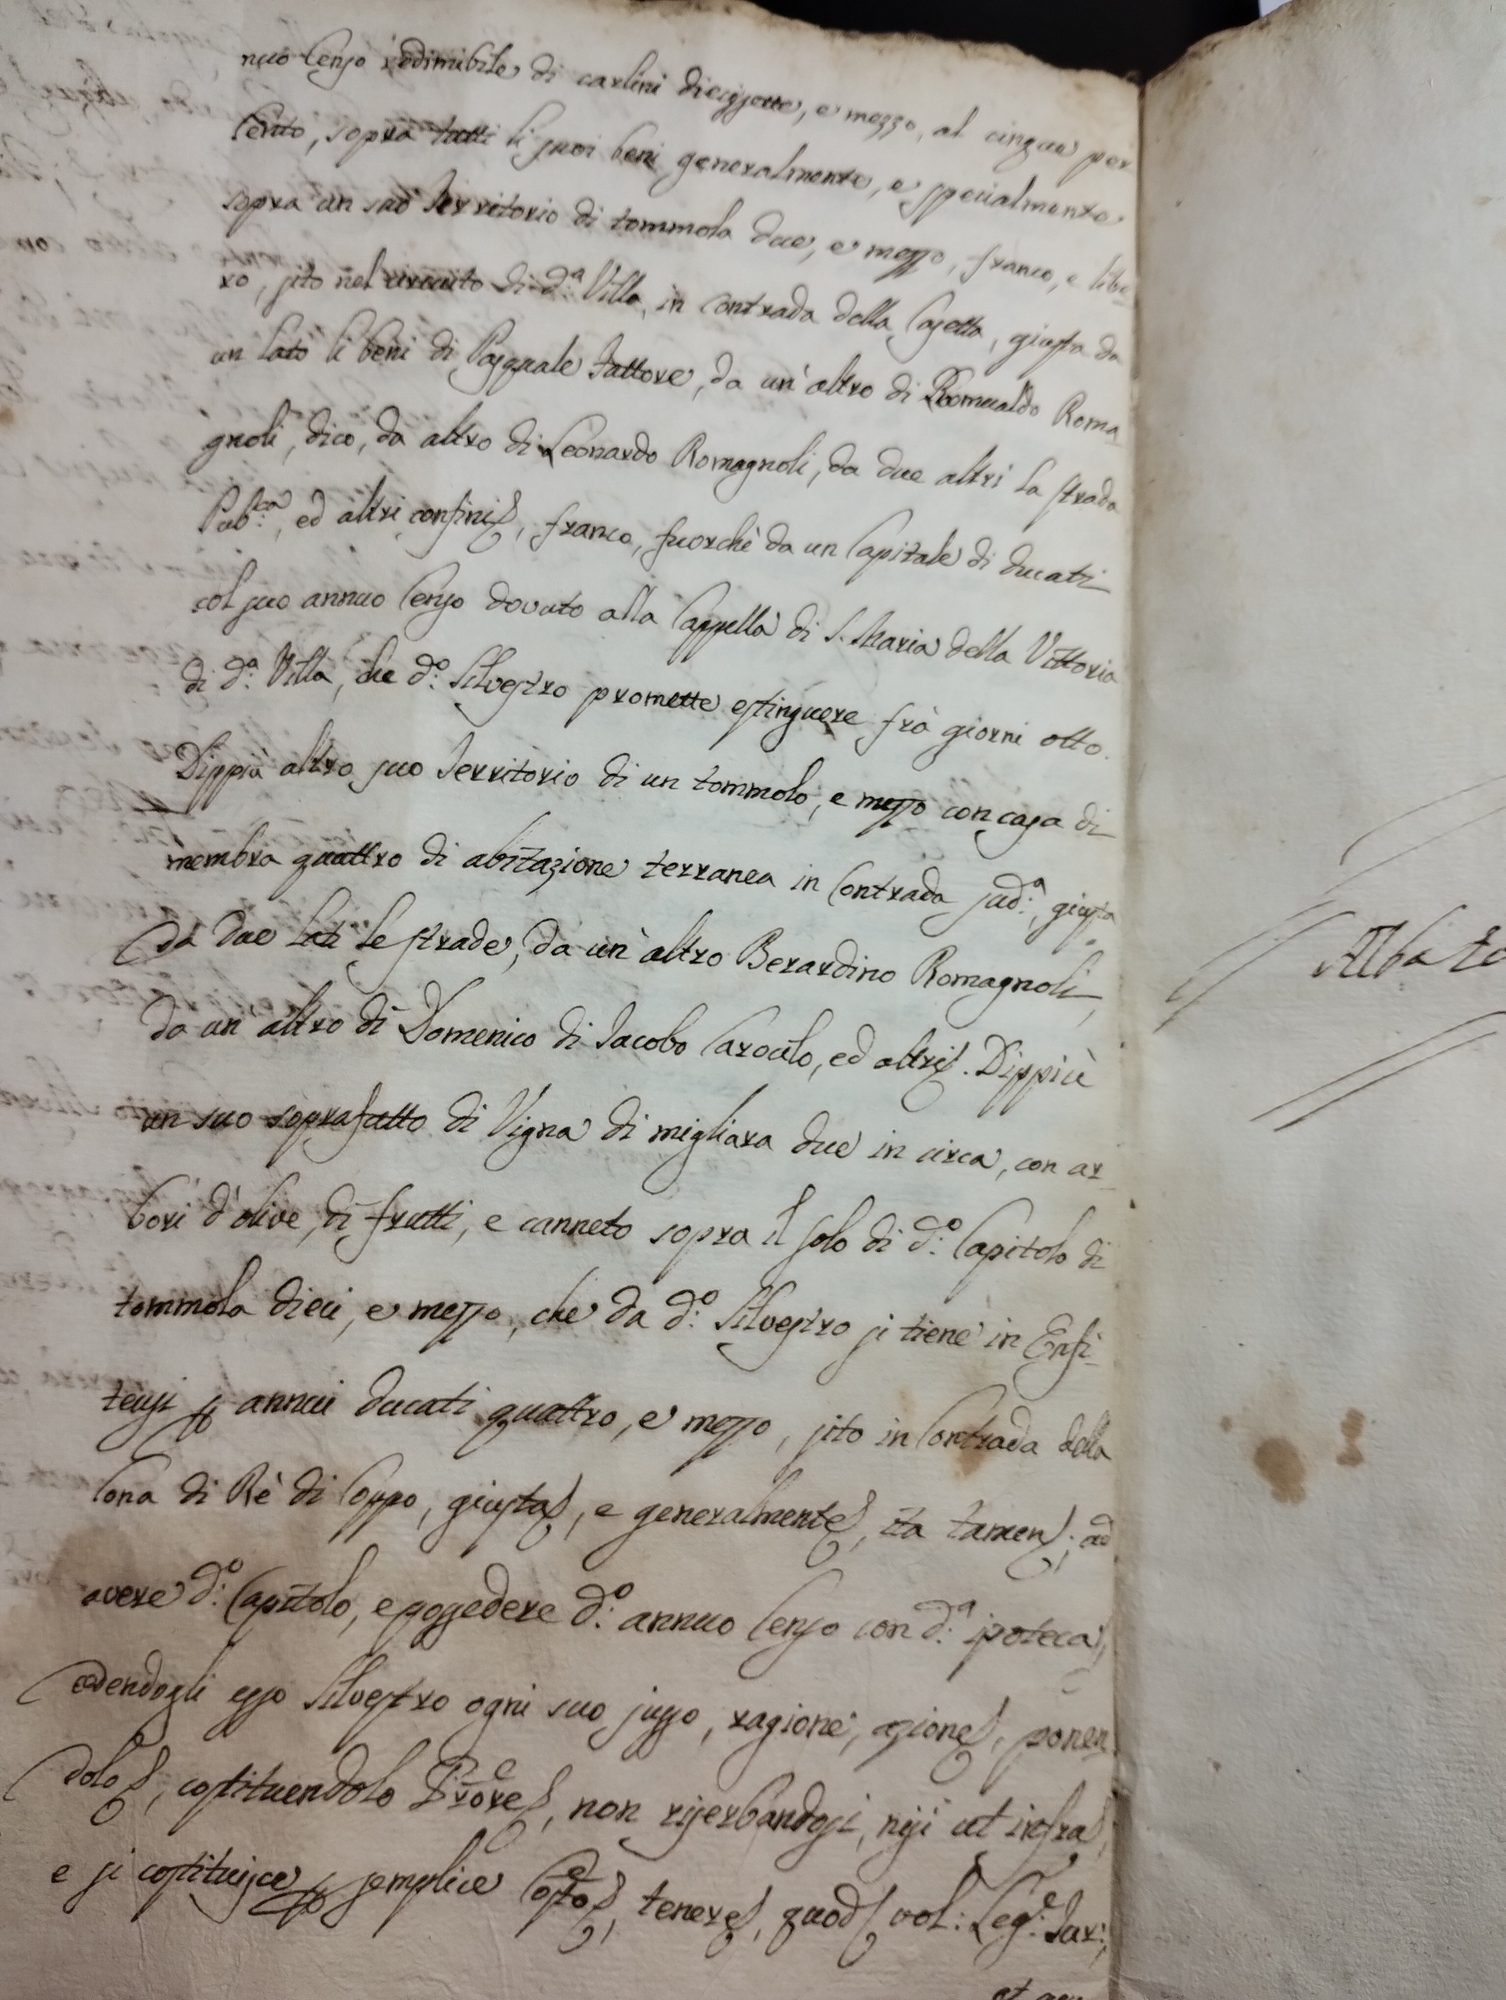 nuo Censo redimibile di carlini diecissette, e mezzo, al cinque per
Cento, sopra tutti li suoi beni generalmente, e specialmente
sopra un suo Territorio di tommola due, e mezzo, franco, e libe-
ro, sito nel circuito di d.ª Villa, in Contrada della Casetta, giusta da
un lato li beni di Pasquale Fattore, da un' altro di Romualdo Roma
gnoli, dico, da altro di Leonardo Romagnoli, da due altri la strada
Pub:ca, ed altri confini, franco, fuorchè da un Capitale di ducati
col suo annuo Censo dovuto alla Cappella di S. Maria della Vittoria
di d:ª Villa, che d:º Silvestro promette estinguere frà giorni otto.
Dippiù altro suo Territorio di un tommolo, e mezzo con casa di
membra quattro di abitazione terranea in Contrada sud:ª, giusta
da due lati le strade, da un' altro Berardino Romagnoli,
da un' altro di Domenico di Iacobo Carocilo, ed altri. Dippiù
un suo soprafatto di Vigna di migliara due in circa, con ar-
bori d'olive, di frutti, e canneto sopra il solo di d:º Capitolo di
tommola dieci, e mezzo, che da d:º Silvestro si tiene in Enfi-
teusi p annui ducati quattro, e mezzo, sito in Contrada della
Cona di Rè di Coppo, giusta, e generalmente, ita tamen, ad
avere d:º Capitolo, e possedere d:º annuo Censo con d:ª ipoteca,
cedendogli esso Silvestro ogni suo jusso, ragione, azione, ponen
dolo, costituendolo Prore, non riserbandosi, nisi ut infra,
e si costituisce p semplice Costo, tenere, quod vol: Leg:e Iur:,
Albato